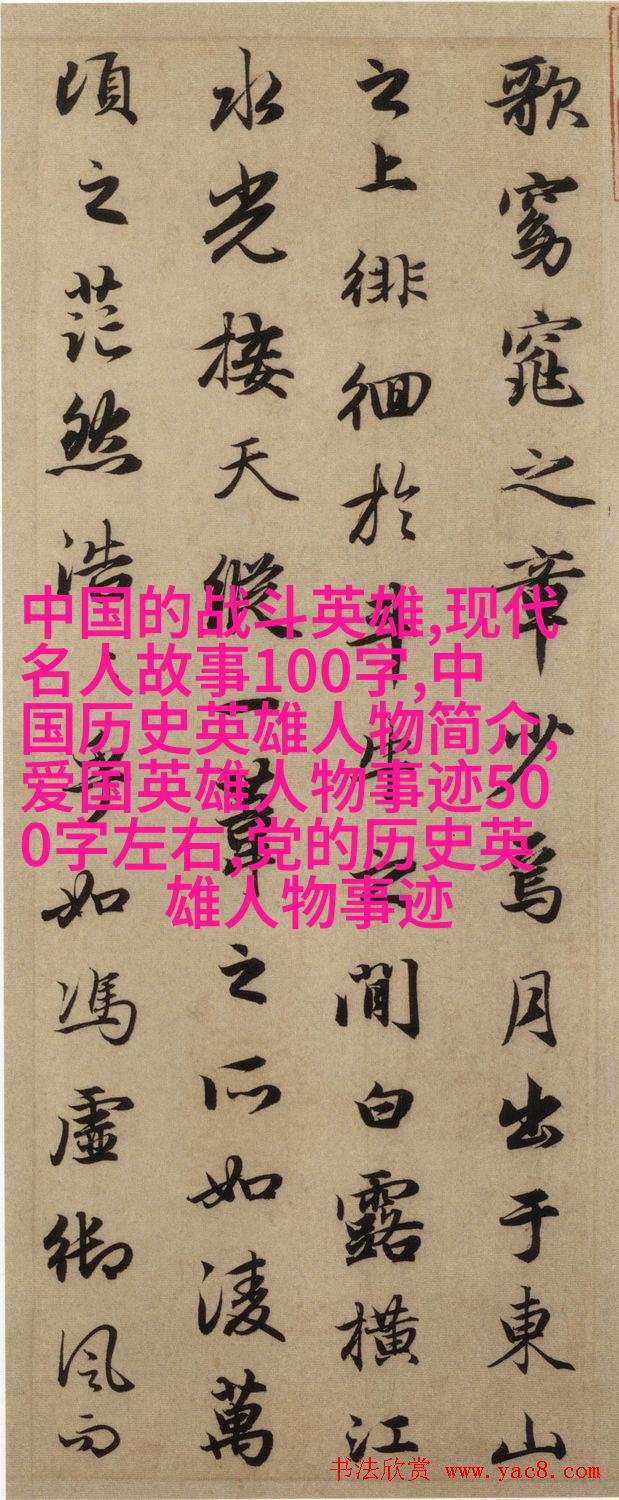 歌窈窕之章少焉月出于東山
之上徘徊於斗牛之間白露橫江
水光接天縱一葦之所如淩萬
頃之茫然浩〻乎如馮虛御風而
中国的战斗英雄,现代
名人故事100字,中
国历史英雄人物简介,
爱国英雄人物事迹50
0字左右,党的历史英
雄人物事迹
书法欣赏 www.yac8.com